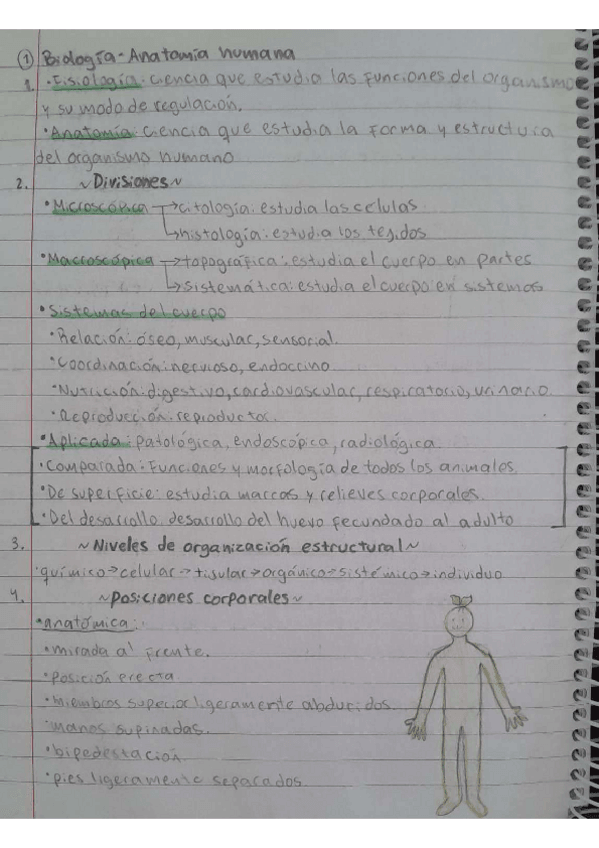 ① Biología - Anatomía humana
1. • Fisiología: ciencia que estudia las funciones del organismo
y su modo de regulación.
• Anatomía: ciencia que estudia la forma y estructura
del organismo humano
2. ~Divisiones~
• Microscópica → citología: estudia las celulas
↳ histología: estudia los tejidos
• Macroscópica → topográfica: estudia el cuerpo en partes
↳ sistemática: estudia el cuerpo en sistemas
• Sistemas del cuerpo
• Relación: óseo, muscular, sensorial.
• Coordinación: nervioso, endocrino
• Nutrición: digestivo, cardiovascular, respiratorio, urinario.
• Reproducción: reproductor.
• Aplicada: patológica, endoscópica, radiológica.
• Comparada: Funciones y morfología de todos los animales.
• De superficie: estudia marcas y relieves corporales.
• Del desarrollo: desarrollo del huevo fecundado al adulto
3. ~Niveles de organización estructural~
• químico → celular → tisular → orgánico → sistémico → individuo
4. ~Posiciones corporales~
• anatómica:
• mirada al frente.
• Posición erecta
• miembros superior ligeramente abducidos.
• manos supinadas.
• bipedestación
• pies ligeramente separados.